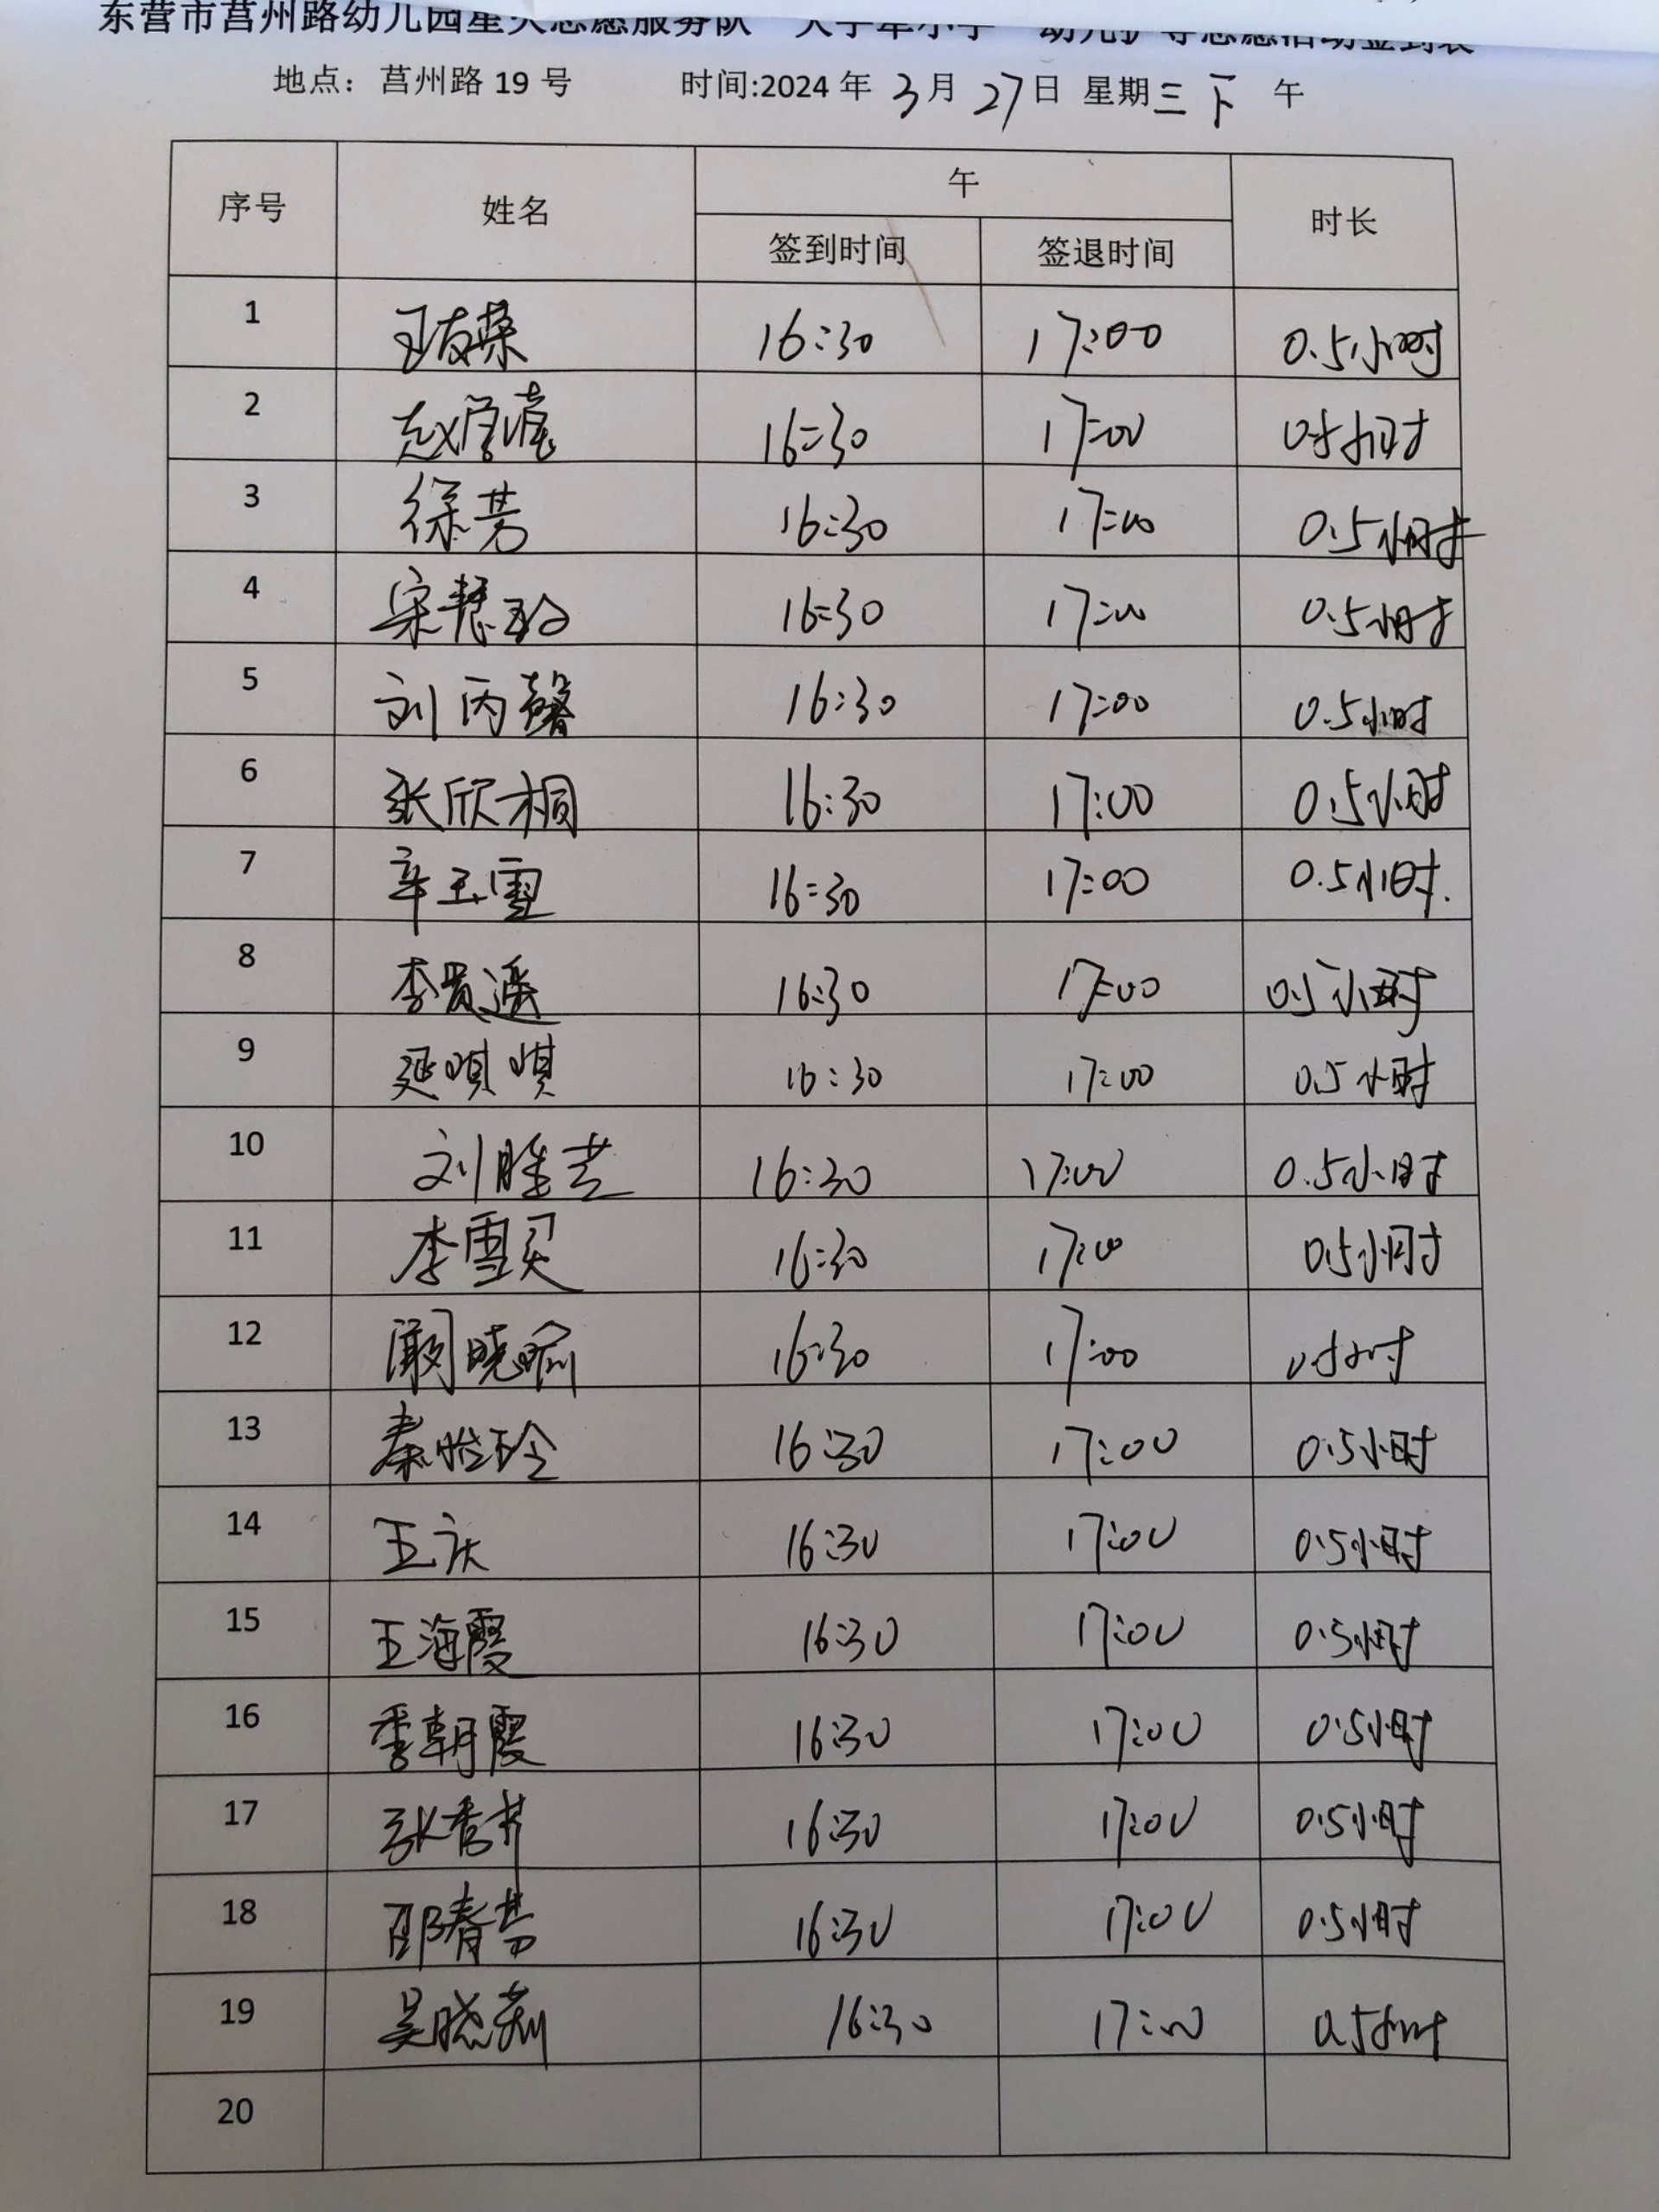 东营市莒州路幼儿园星火志愿服务队 大手牵小手 幼儿护导志愿活动签到表
地点：莒州路 19 号 时间:2024 年 3 月 27 日 星期 三 下 午
序号 姓名 午 时长
签到时间 签退时间
1 王友荣 16:30 17:00 0.5小时
2 赵 16:30 17:00 0.5小时
3 徐芳 16:30 17:00 0.5小时
4 宋慧玲 16:30 17:00 0.5小时
5 刘丙馨 16:30 17:00 0.5小时
6 张欣桐 16:30 17:00 0.5小时
7 辛玉雪 16:30 17:00 0.5小时.
8 李贵遥 16:30 17:00 0.5小时
9 延唄唄 16:30 17:00 0.5小时
10 刘胜芝 16:30 17:00 0.5小时
11 李雪 16:30 17:00 0.5小时
12 阚晓瑜 16:30 17:00 0.5小时
13 秦 玲 16:30 17:00 0.5小时
14 王庆 16:30 17:00 0.5小时
15 王海霞 16:30 17:00 0.5小时
16 季朝霞 16:30 17:00 0.5小时
17 张秀井 16:30 17:00 0.5小时
18 邵春芳 16:30 17:00 0.5小时
19 吴晓莉 16:30 17:00 0.5小时
20